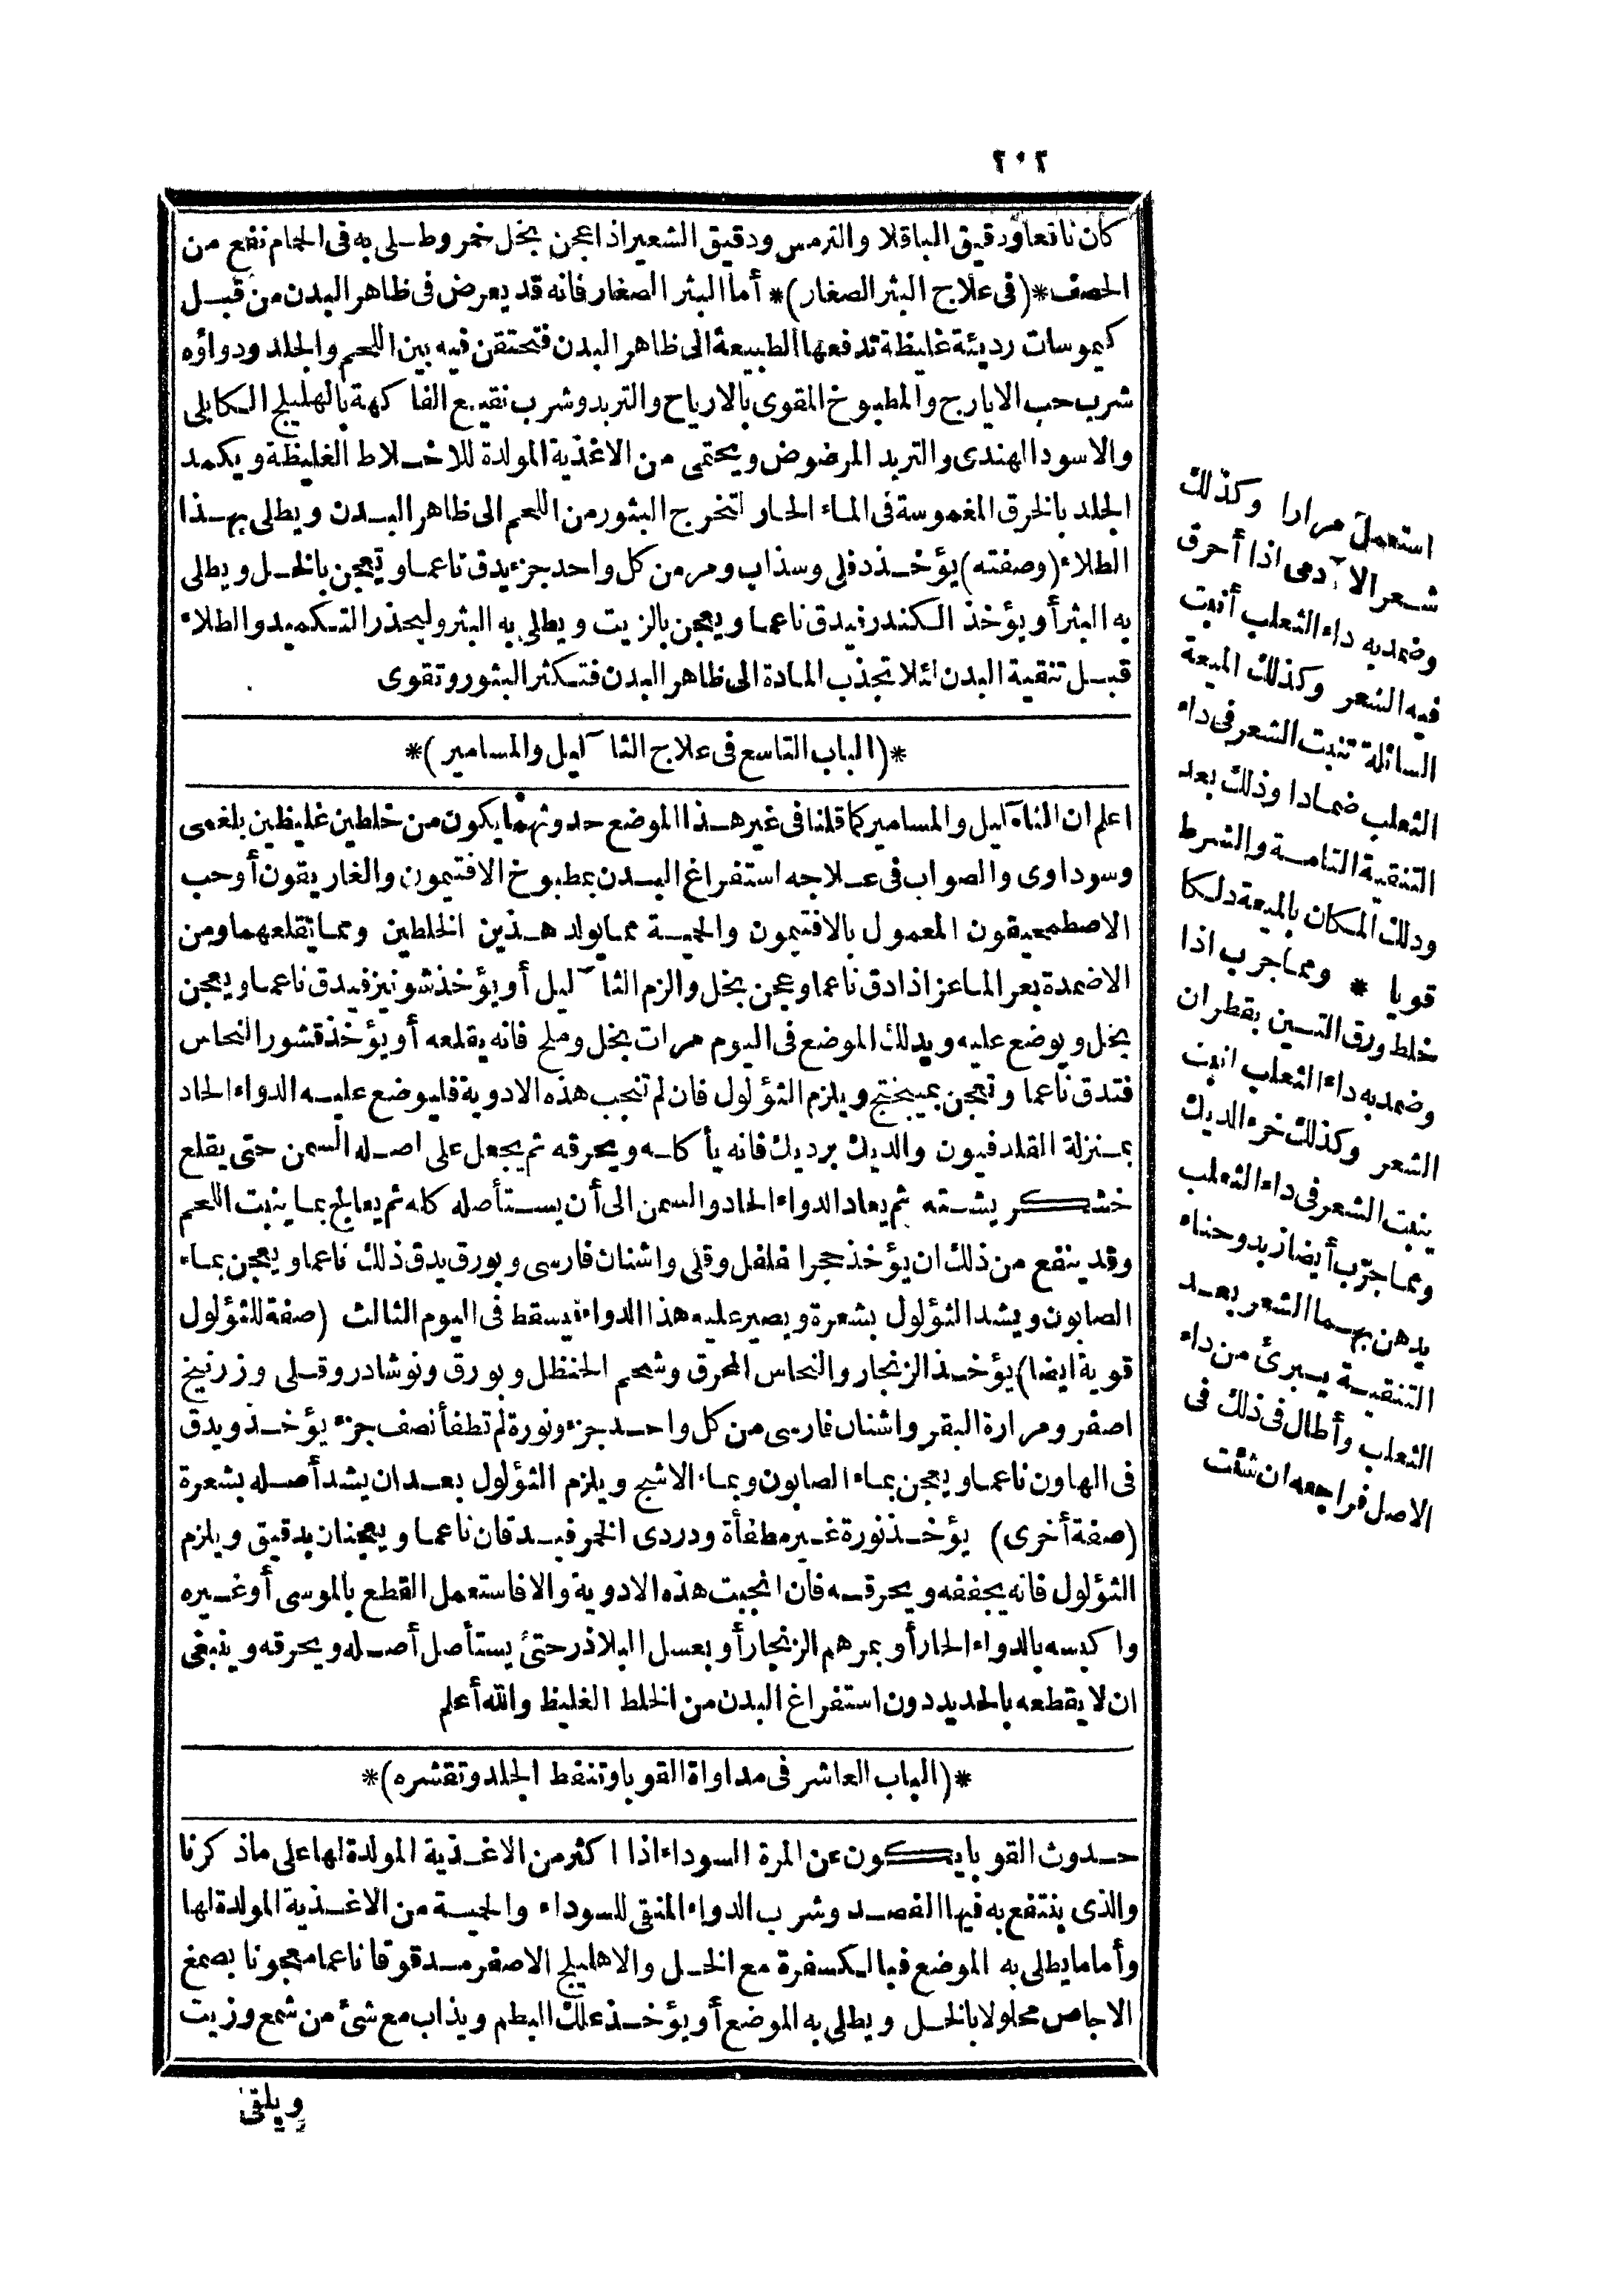 ٢٠٢
كان نافعا ودقيق الباقلا والترمس ودقيق الشعير اذا عجن بخل خمر وطلى به فى الحمام نفع من
الحصف *(فى علاج البثر الصغار)* أما البثر الصغار فانه قد يعرض فى ظاهر البدن من قبل
كيموسات رديئة غليظة تدفعها الطبيعة الى ظاهر البدن فتحتقن فيه بين اللحم والجلد ودواؤه
شرب حب الايارج والمطبوخ المقوى بالارياح والتربد وشرب نقيع الفاكهة بالهليلج الكابلى
والاسود الهندى والتربد المرضوض ويحتمى من الاغذية المولدة للاخلاط الغليظة ويكمد
الجلد بالخرق المغموسة فى الماء الحار لتخرج البثور من اللحم الى ظاهر البدن ويطلى بهذا
الطلاء (وصفته) يؤخذ دفلى وسذاب ومر من كل واحد جزء يدق ناعما وتعجن بالخل ويطلى
به البثر أو يؤخذ الكندر فيدق ناعما ويعجن بالزيت ويطلى به البثر وليحذر التكميد والطلاء
قبل تنقية البدن لئلا تجذب المادة الى ظاهر البدن فتكثر البثور وتقوى
*(الباب التاسع فى علاج الثآليل والمسامير)*
اعلم ان الثآليل والمسامير كما قلنا فى غير هذا الموضع حدوثهما يكون من خلطين غليظين بلغمى
وسوداوى والصواب فى علاجه استفراغ البدن بمطبوخ الافتيمون والغاريقون أو حب
الاصطمحيقون المعمول بالافتيمون والحمية مما يولد هذين الخلطين ومما تقلعهما ومن
الاضمدة بعر الماعز اذا دق ناعما وعجن بخل والزم الثآليل أو يؤخذ شونيز فيدق ناعما ويعجن
بخل ويوضع عليه ويدلك الموضع فى اليوم مرات بخل وملح فانه يقلعه أو يؤخذ قشور النحاس
فتدق ناعما وتعجن بميبختج ويلزم الثؤلول فان لم تنجب هذه الادوية فليوضع عليه الدواء الحاد
بمنزلة القلدفيون والديك برديك فانه يأكله ويحرقه ثم يجعل على اصله السمن حتى يقلع
خشكريشته ثم يعاد الدواء الحاد والسمن الى أن يستأصله كله ثم يعالج بما ينبت اللحم
وقد ينفع من ذلك ان يؤخذ حجرا فلفل وقلى واشنان فارسى وبورق يدق ذلك ناعما ويعجن بماء
الصابون ويشد الثؤلول بشعرة ويصير عليه هذا الدواء يسقط فى اليوم الثالث (صفة للثؤلول
قوية ايضا) يؤخذ الزنجار والنحاس المحرق وشحم الحنظل وبورق ونوشادر وقلى وزرنيخ
اصفر ومرارة البقر واشنان فارسى من كل واحد جزء ونورة لم تطفأ نصف جزء يؤخذ ويدق
فى الهاون ناعما ويعجن بماء الصابون وبماء الاشج ويلزم الثؤلول بعد ان يشد أصله بشعرة
(صفة أخرى) يؤخذ نورة غير مطفأة ودردى الخمر فيدقان ناعما ويعجنان بدقيق ويلزم
الثؤلول فانه يجففه ويحرقه فان انجبت هذه الادوية والا فاستعمل القطع بالموسى أو غيره
واكبسه بالدواء الحار أو بمرهم الزنجار أو بعسل البلاذر حتى يستأصل أصله ويحرقه وينبغى
ان لا يقطعه بالحديد دون استفراغ البدن من الخلط الغليظ والله أعلم
*(الباب العاشر فى مداواة القوبا وتنفط الجلد وتقشره)*
حدوث القوبا يكون عن المرة السوداء اذا اكثر من الاغذية المولدة لها على ما ذكرنا
والذى ينتفع به فيها الفصد وشرب الدواء المنقى للسوداء والحمية من الاغذية المولدة لها
وأما ما يطلى به الموضع فبالكسفرة مع الخل والاهليلج الاصفر مدقوقا ناعما معجونا بصمغ
الاجاص محلولا بالخل ويطلى به الموضع أو يؤخذ علك البطم ويذاب مع شئ من شمع وزيت
ويلقى
استعمل مرارا وكذلك
شعر الآدمى اذا أحرق
وضمد به داء الثعلب أنبت
فيه الشعر وكذلك الميعة
السائلة تنبت الشعر فى داء
الثعلب ضمادا وذلك بعد
التنقية التامة والشرط
ودلك المكان بالميعة دلكا
قويا * ومما جرب اذا
خلط ورق التين بقطران
وضمد به داء الثعلب انبت
الشعر وكذلك خرء الديك
ينبت الشعر فى داء الثعلب
ومما جرّب أيضا زبد وحناء
يدهن بهما الشعر بعد
التنقية يبرئ من داء
الثعلب وأطال فى ذلك فى
الاصل فراجعه ان شئت